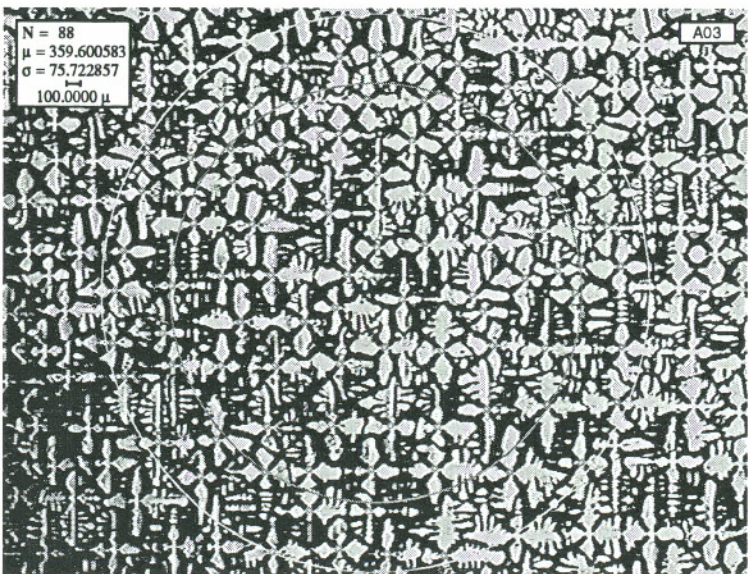 N = 88
μ = 359.600583
σ = 75.722857
100.0000 μ
A03